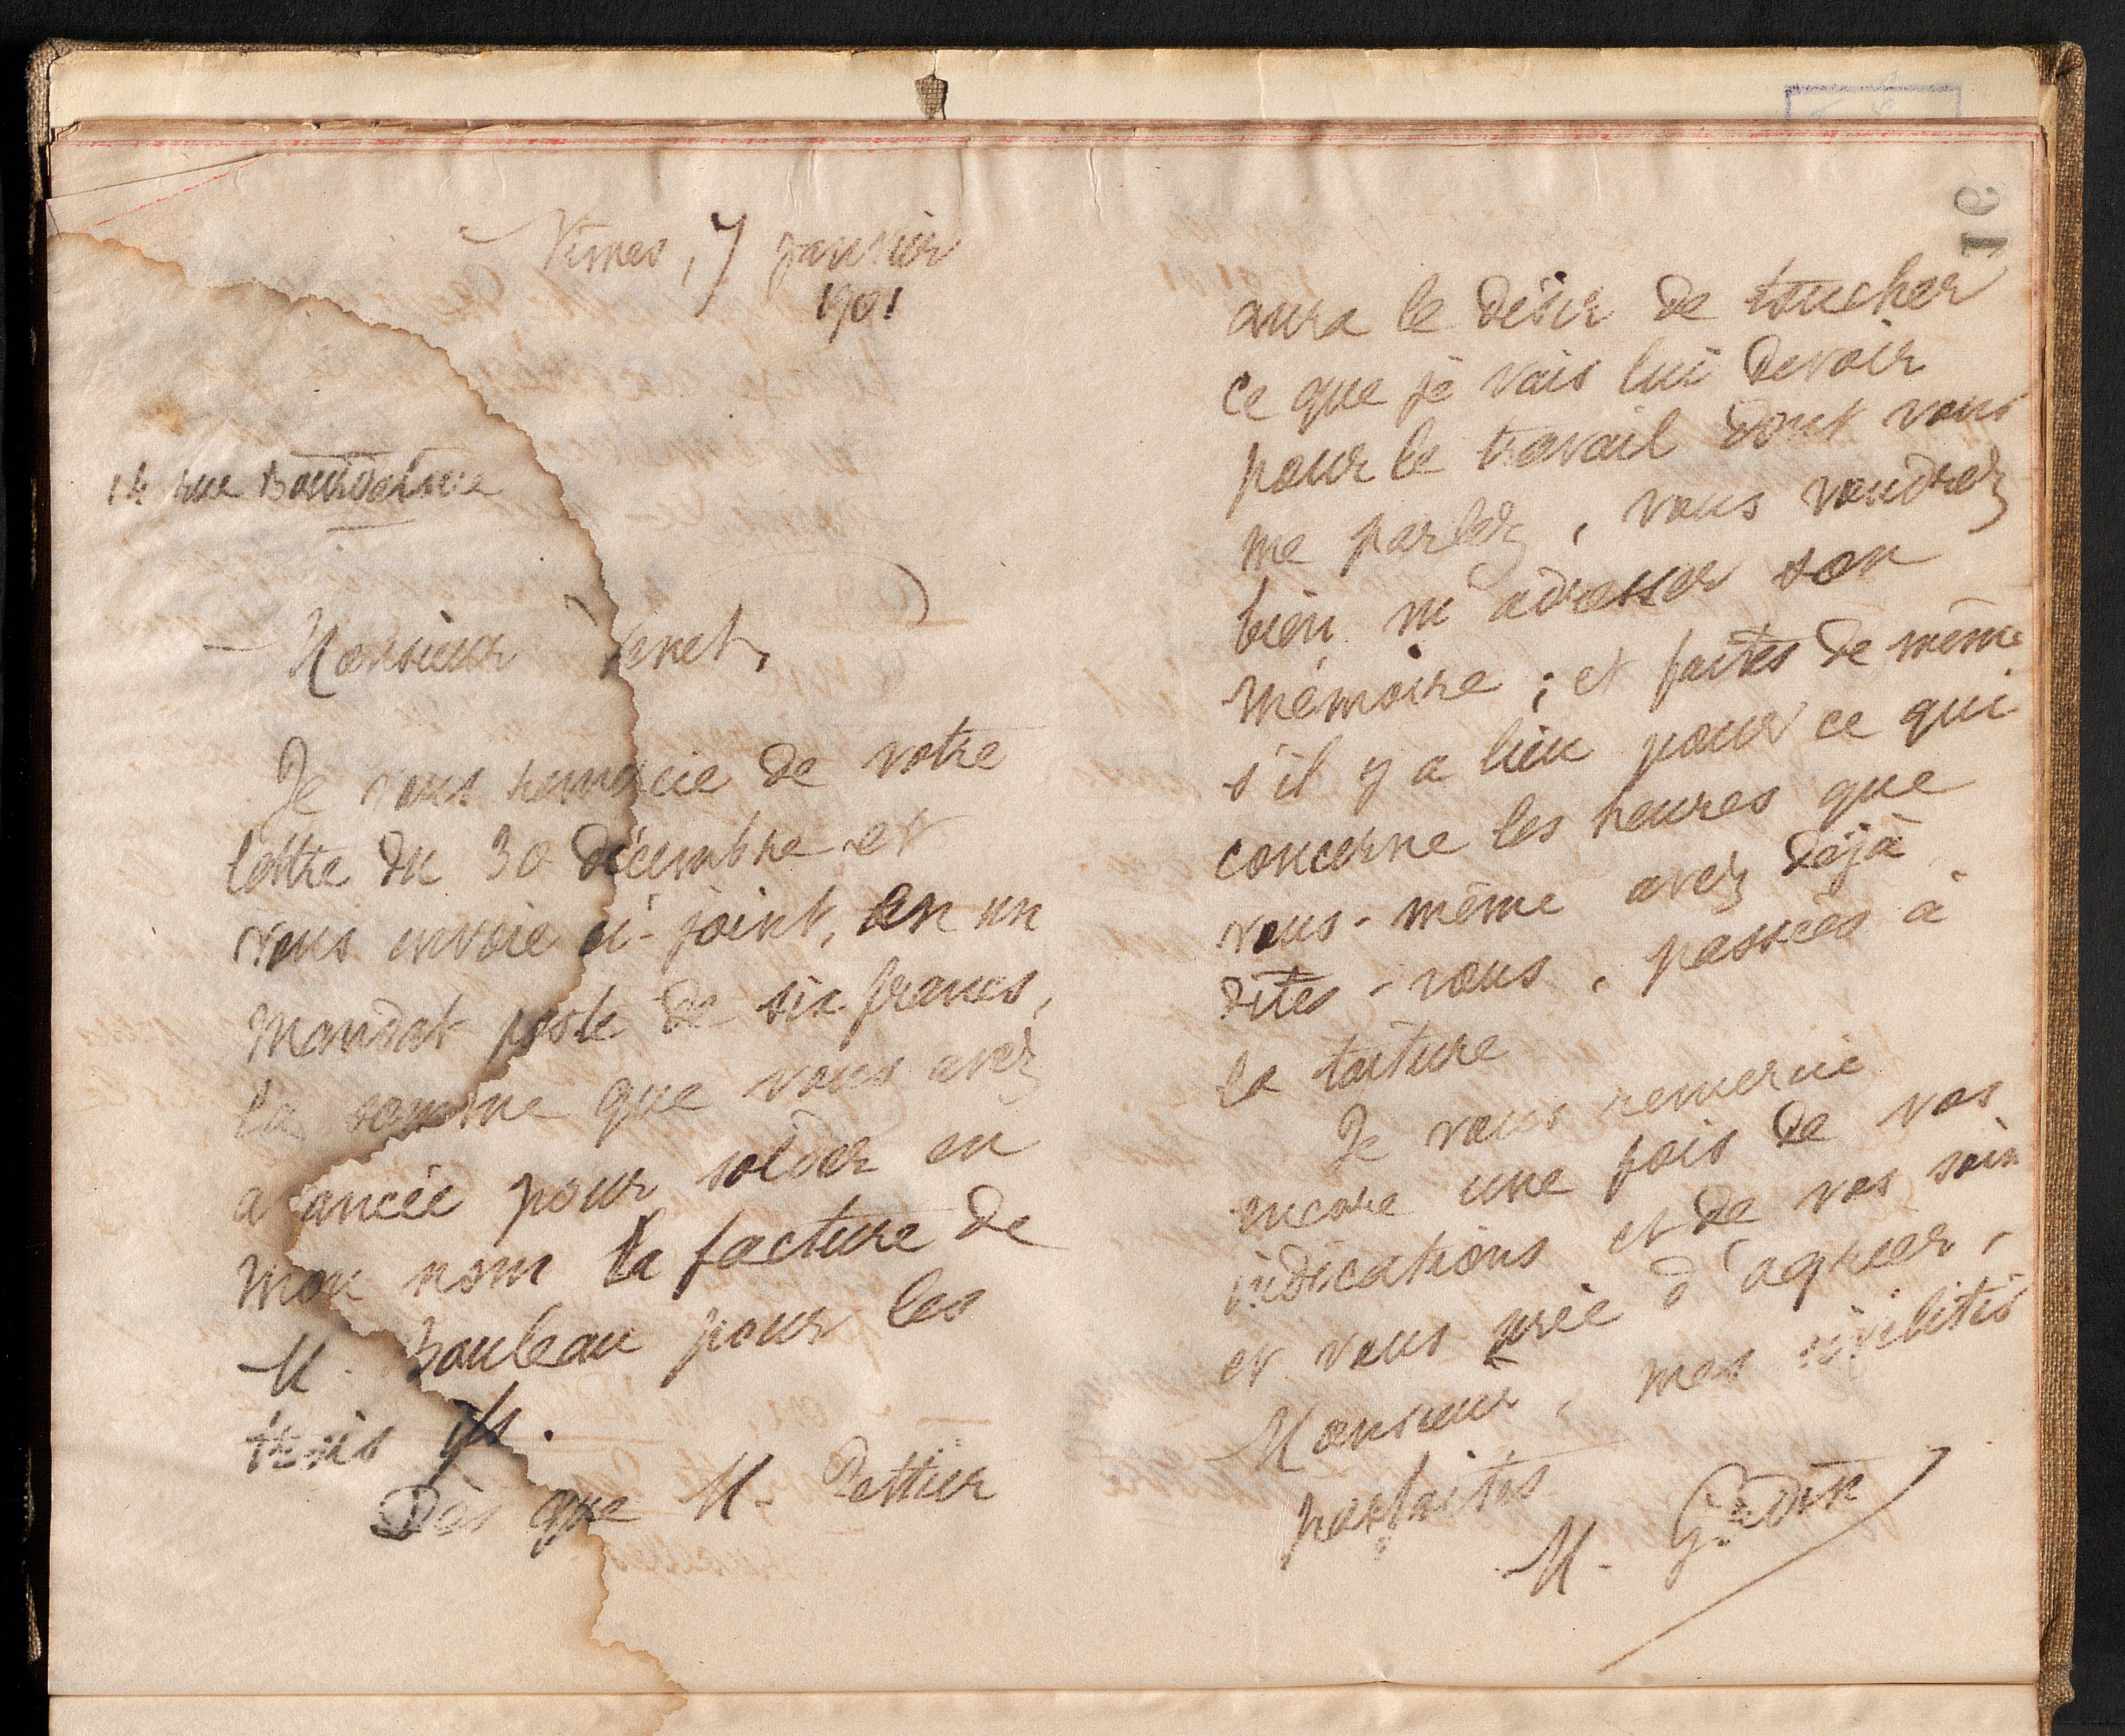 Nîmes, 7 Janvier
1901
14 rue Bourdaloue
Monsieur
Je vous remercie de votre
lettre du 30 décembre et
vous envoie ci-joint, en un
mandat poste de six francs,
la somme que vous avez
avancée pour solder en
mon nom la facture de
M. Bouleau pour les
trois ifs.
Dès que M. Pettier
16
aura le désir de toucher
ce que je vais lui devoir
pour le travail dont vous
me parlez, vous voudrez
bien m'adresser son
mémoire ; et faites de même
s'il y a lieu pour ce qui
concerne les heures que
vous-même avez déjà
dites-vous, passées à
la toiture
Je vous remercie
encore une fois de vos
indications et de vos soins
et vous prie d'agréer,
Monsieur, mes civilités
parfaites
M. Godin